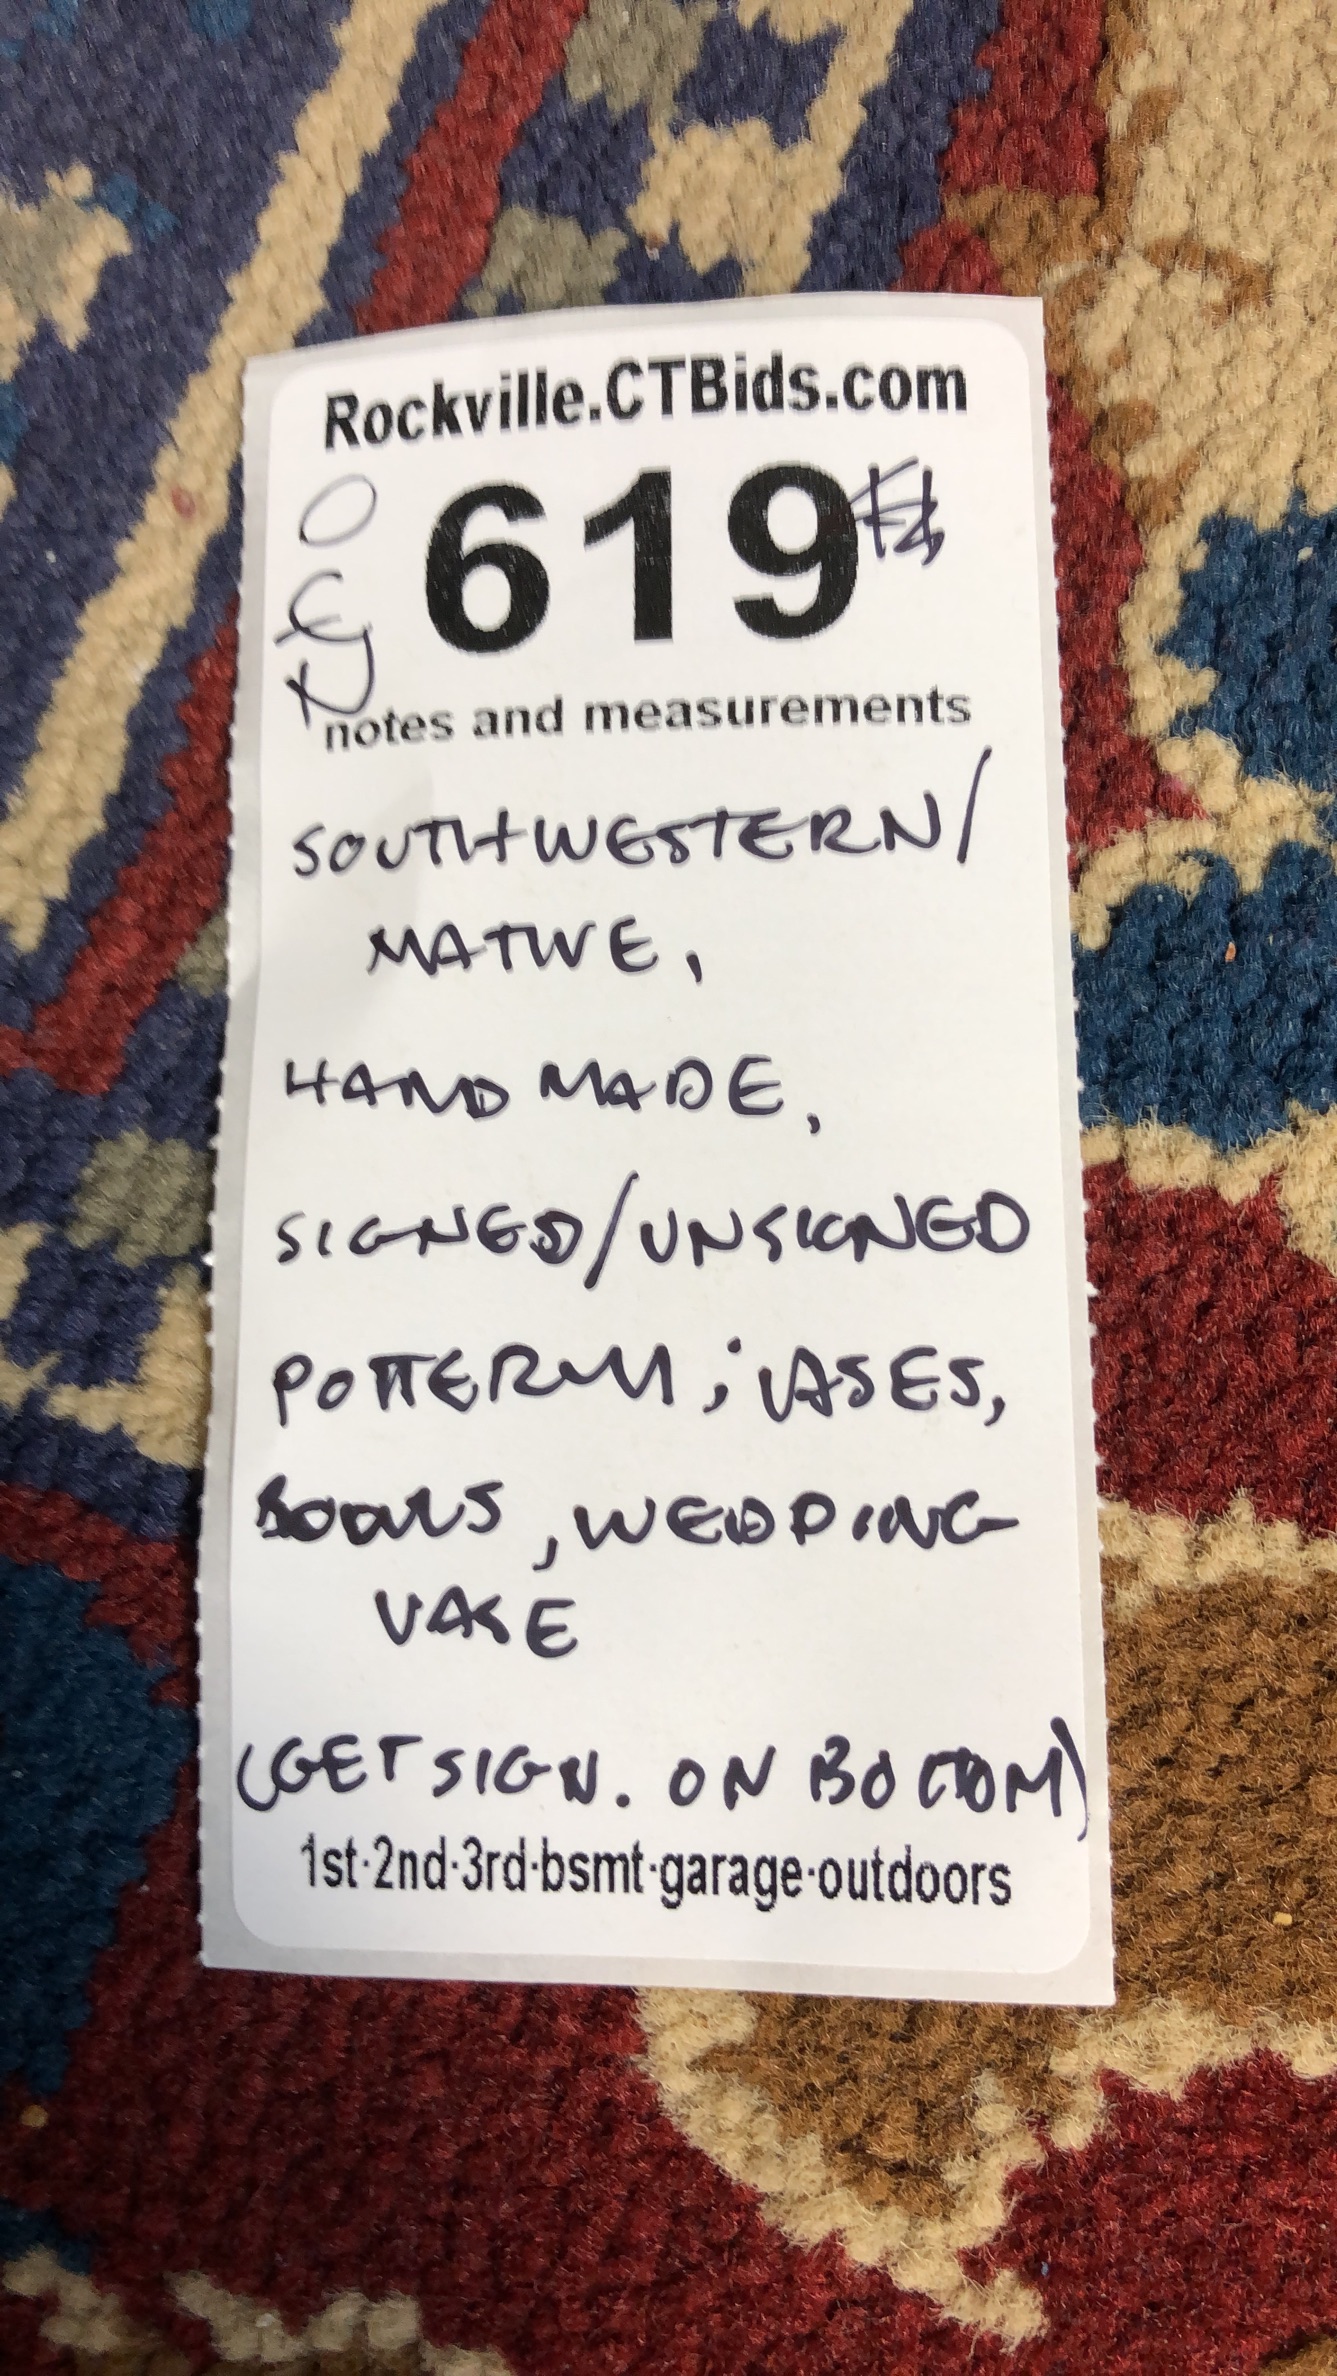 Rockville.CTBids.com
619
notes and measurements
SOUTHWESTERN/
NATIVE,
HAND MADE,
SIGNED/UNSIGNED
POTTERY; VASES,
BOWLS, WEDDING
VASE
(GET SIGN. ON BOTTOM)
1st·2nd·3rd·bsmt·garage·outdoors